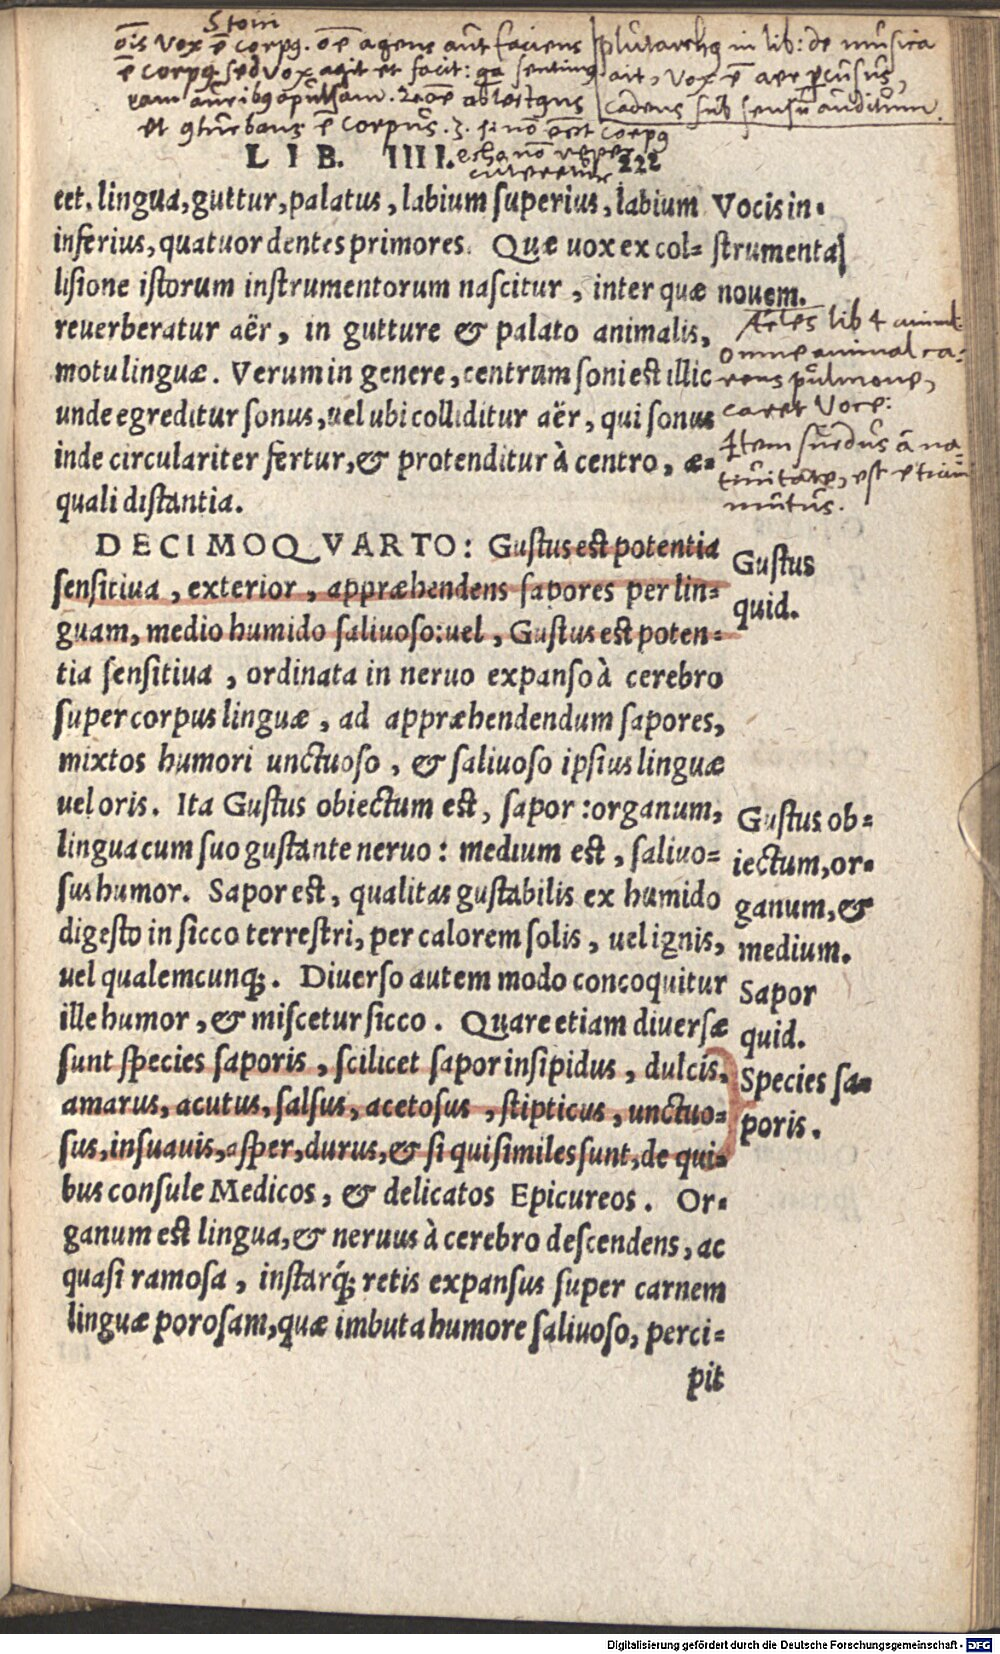 Stoici
ōis vox ē corpꝰ. oē agens aut faciens
ē corpꝰ. sed vox agit et facit: qa sentimꝰ
eam auribꝰ
et ꝯturbans ē corpus. 3. si nō eēt corpꝰ
echo nō
plutarchꝰ in lib: de musica
ait, vox ē aer ꝑcusus,
cadens sub sensū auditum.
LIB. IIII. 222
eet, lingua, guttur, palatus, labium superius, labium
inferius, quatuor dentes primores. Quæ uox ex col-
lisione istorum instrumentorum nascitur, inter quæ
reuerberatur aër, in gutture & palato animalis,
motu linguæ. Verum in genere, centrum soni est illic
unde egreditur sonus, uel ubi colliditur aër, qui sonus
inde circulariter fertur, & protenditur à centro, æ-
quali distantia.
Vocis in-
strumenta
nouem.
lib 4 animal:
omne animal ca-
rens pulmone,
caret voce:
Item surdus à na-
tivitate, est etiam
mutus.
DECIMOQVARTO: Gustus est potentia
sensitiua, exterior, appræhendens sapores per lin-
guam, medio humido saliuoso: uel, Gustus est poten-
tia sensitiua, ordinata in neruo expanso à cerebro
super corpus linguæ, ad appræhendendum sapores,
mixtos humori unctuoso, & saliuoso ipsius linguæ
uel oris. Ita Gustus obiectum est, sapor: organum,
lingua cum suo gustante neruo: medium est, saliuo-
sus humor. Sapor est, qualitas gustabilis ex humido
digesto in sicco terrestri, per calorem solis, uel ignis,
uel qualemcunq;. Diuerso autem modo concoquitur
ille humor, & miscetur sicco. Quare etiam diuersæ
sunt species saporis, scilicet sapor insipidus, dulcis,
amarus, acutus, salsus, acetosus, stipticus, unctuo-
sus, insuauis, asper, durus, & si qui similes sunt, de qui-
bus consule Medicos, & delicatos Epicureos. Or-
ganum est lingua, & neruus à cerebro descendens, ac
quasi ramosa, instarq́; retis expansus super carnem
linguæ porosam, quæ imbuta humore saliuoso, perci-
pit
Gustus
quid.
Gustus ob-
iectum, or-
ganum, &
medium.
Sapor
quid.
Species sa-
poris.
Digitalisierung gefördert durch die Deutsche Forschungsgemeinschaft - DFG